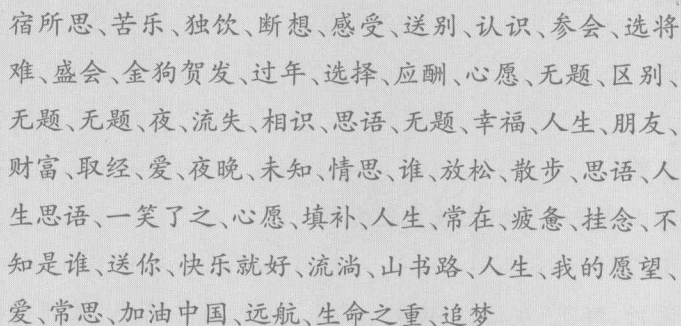 宿所思、苦乐、独饮、断想、感受、送别、认识、参会、选将
难、盛会、金狗贺发、过年、选择、应酬、心愿、无题、区别、
无题、无题、夜、流失、相识、思语、无题、幸福、人生、朋友、
财富、取经、爱、夜晚、未知、情思、谁、放松、散步、思语、人
生思语、一笑了之、心愿、填补、人生、常在、疲惫、挂念、不
知是谁、送你、快乐就好、流淌、山书路、人生、我的愿望、
爱、常思、加油中国、远航、生命之重、追梦